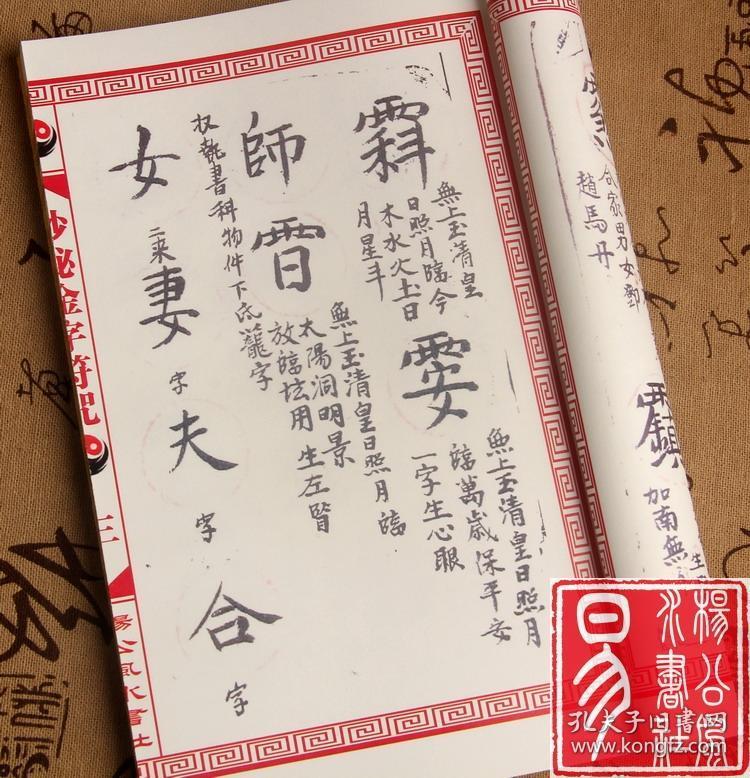 無上玉清皇
日照月臨今
木水火土日
月星斗
無上玉清皇日照月
臨萬歲保平安
一字生心眼
師
無上玉清皇日照月臨
太陽洞明景
放臨坛用 生左腎
扙執書科物件下底蘢字
女
二来
妻
字
夫
字
合
字
合家男女鄭
趙馬丹
加南無
妙秘金字符咒
三
楊公風水書社
楊公風水書社
易
孔夫子旧書网
www.kongfz.com